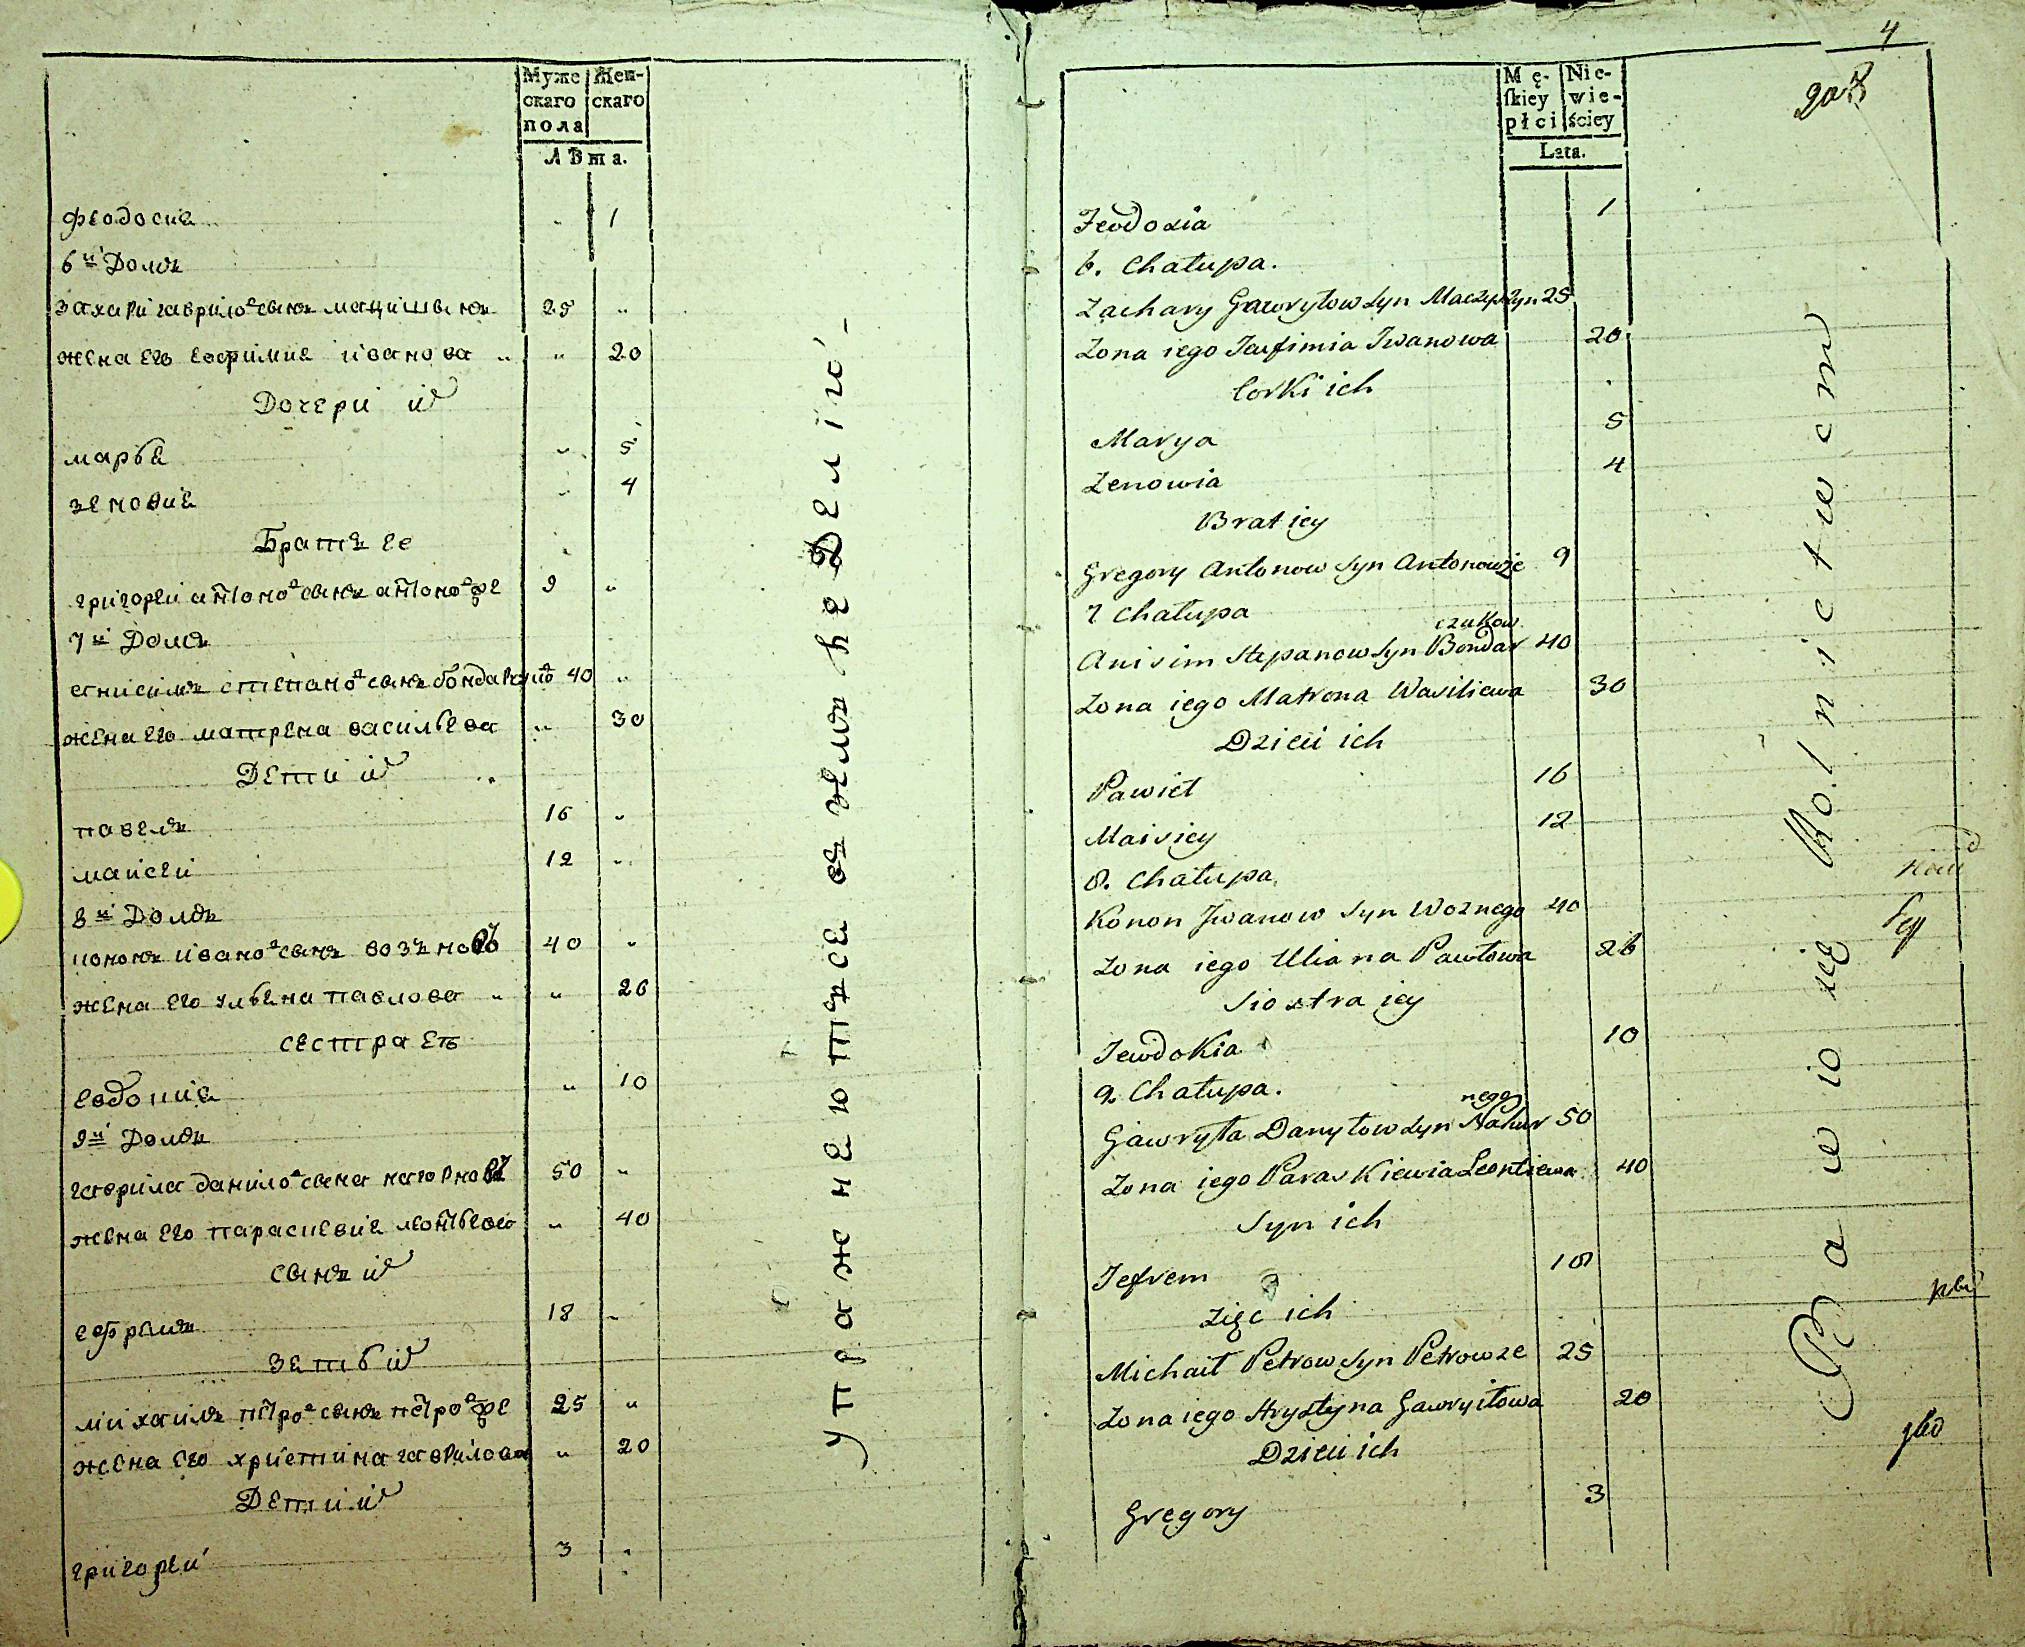 Муже
скаго
пола
Жен-
скаго
Лѣта.
феодосиа " 1
6й Домъ
захари гаврилов сынъ мацишынъ 25 "
жена его евфимие иванова " 20
Дочери их
марье " 5
зеновие " 4
Братъ ее
григореи антонов сынъ 9 "
7й Домъ
степанов сынъ 40 "
жена его матрена васильева " 30
Дети их
павелъ 16 "
маисеи 12 "
8й Домъ
кононъ иванов сынъ 40 "
жена его ульена павлова " 26
сестра еѣ
евдокие " 10
9й Домъ
гаврила данилов сына 50 "
жена его параскевие леонтьева " 40
сынъ их
ефремъ 18 "
зеть их
михаилъ петров сынъ 25 "
жена его христина гаврилова " 20
Дети их
григореи 3 "
упражнеютъсе въ земъ не Делиіо
4
Mę-
skiey
płci
Nie-
wie-
ściey
Lata.
Feodozia 1
6. Chałupa.
Zachary Gawryłow Syn Maczyszyn 25
Zona iego Jeufimia Iwanowa 20
Corki ich
Marya 5
Zenowia 4
Brat iey
Gregory Antonow Syn Antonowże 9
7 Chałupa
czukow
Anisim Stepanow Syn Bondar 40
Zona iego Matrona Wasiliewa 30
Dzieci ich
Pawieł 16
Maisiey 12
8. Chałupa
Konon Jwanow Syn Woznego 40
Zona iego Uliana Pawłowa 26
Siostra iey
Jewdokia 10
9. Chałupa.
nego
Gawryła Danyłow Syn Nahur 50
Zona iego Paraskiewia Leontiewa 40
Syn ich
Jefrem 18
Zięc ich
Michaił Petrow Syn Petrowze 25
Zona iego Hrystyna Gawryiłowa 20
Dzieci ich
Gregory 3
Bawio się Rolnictwem